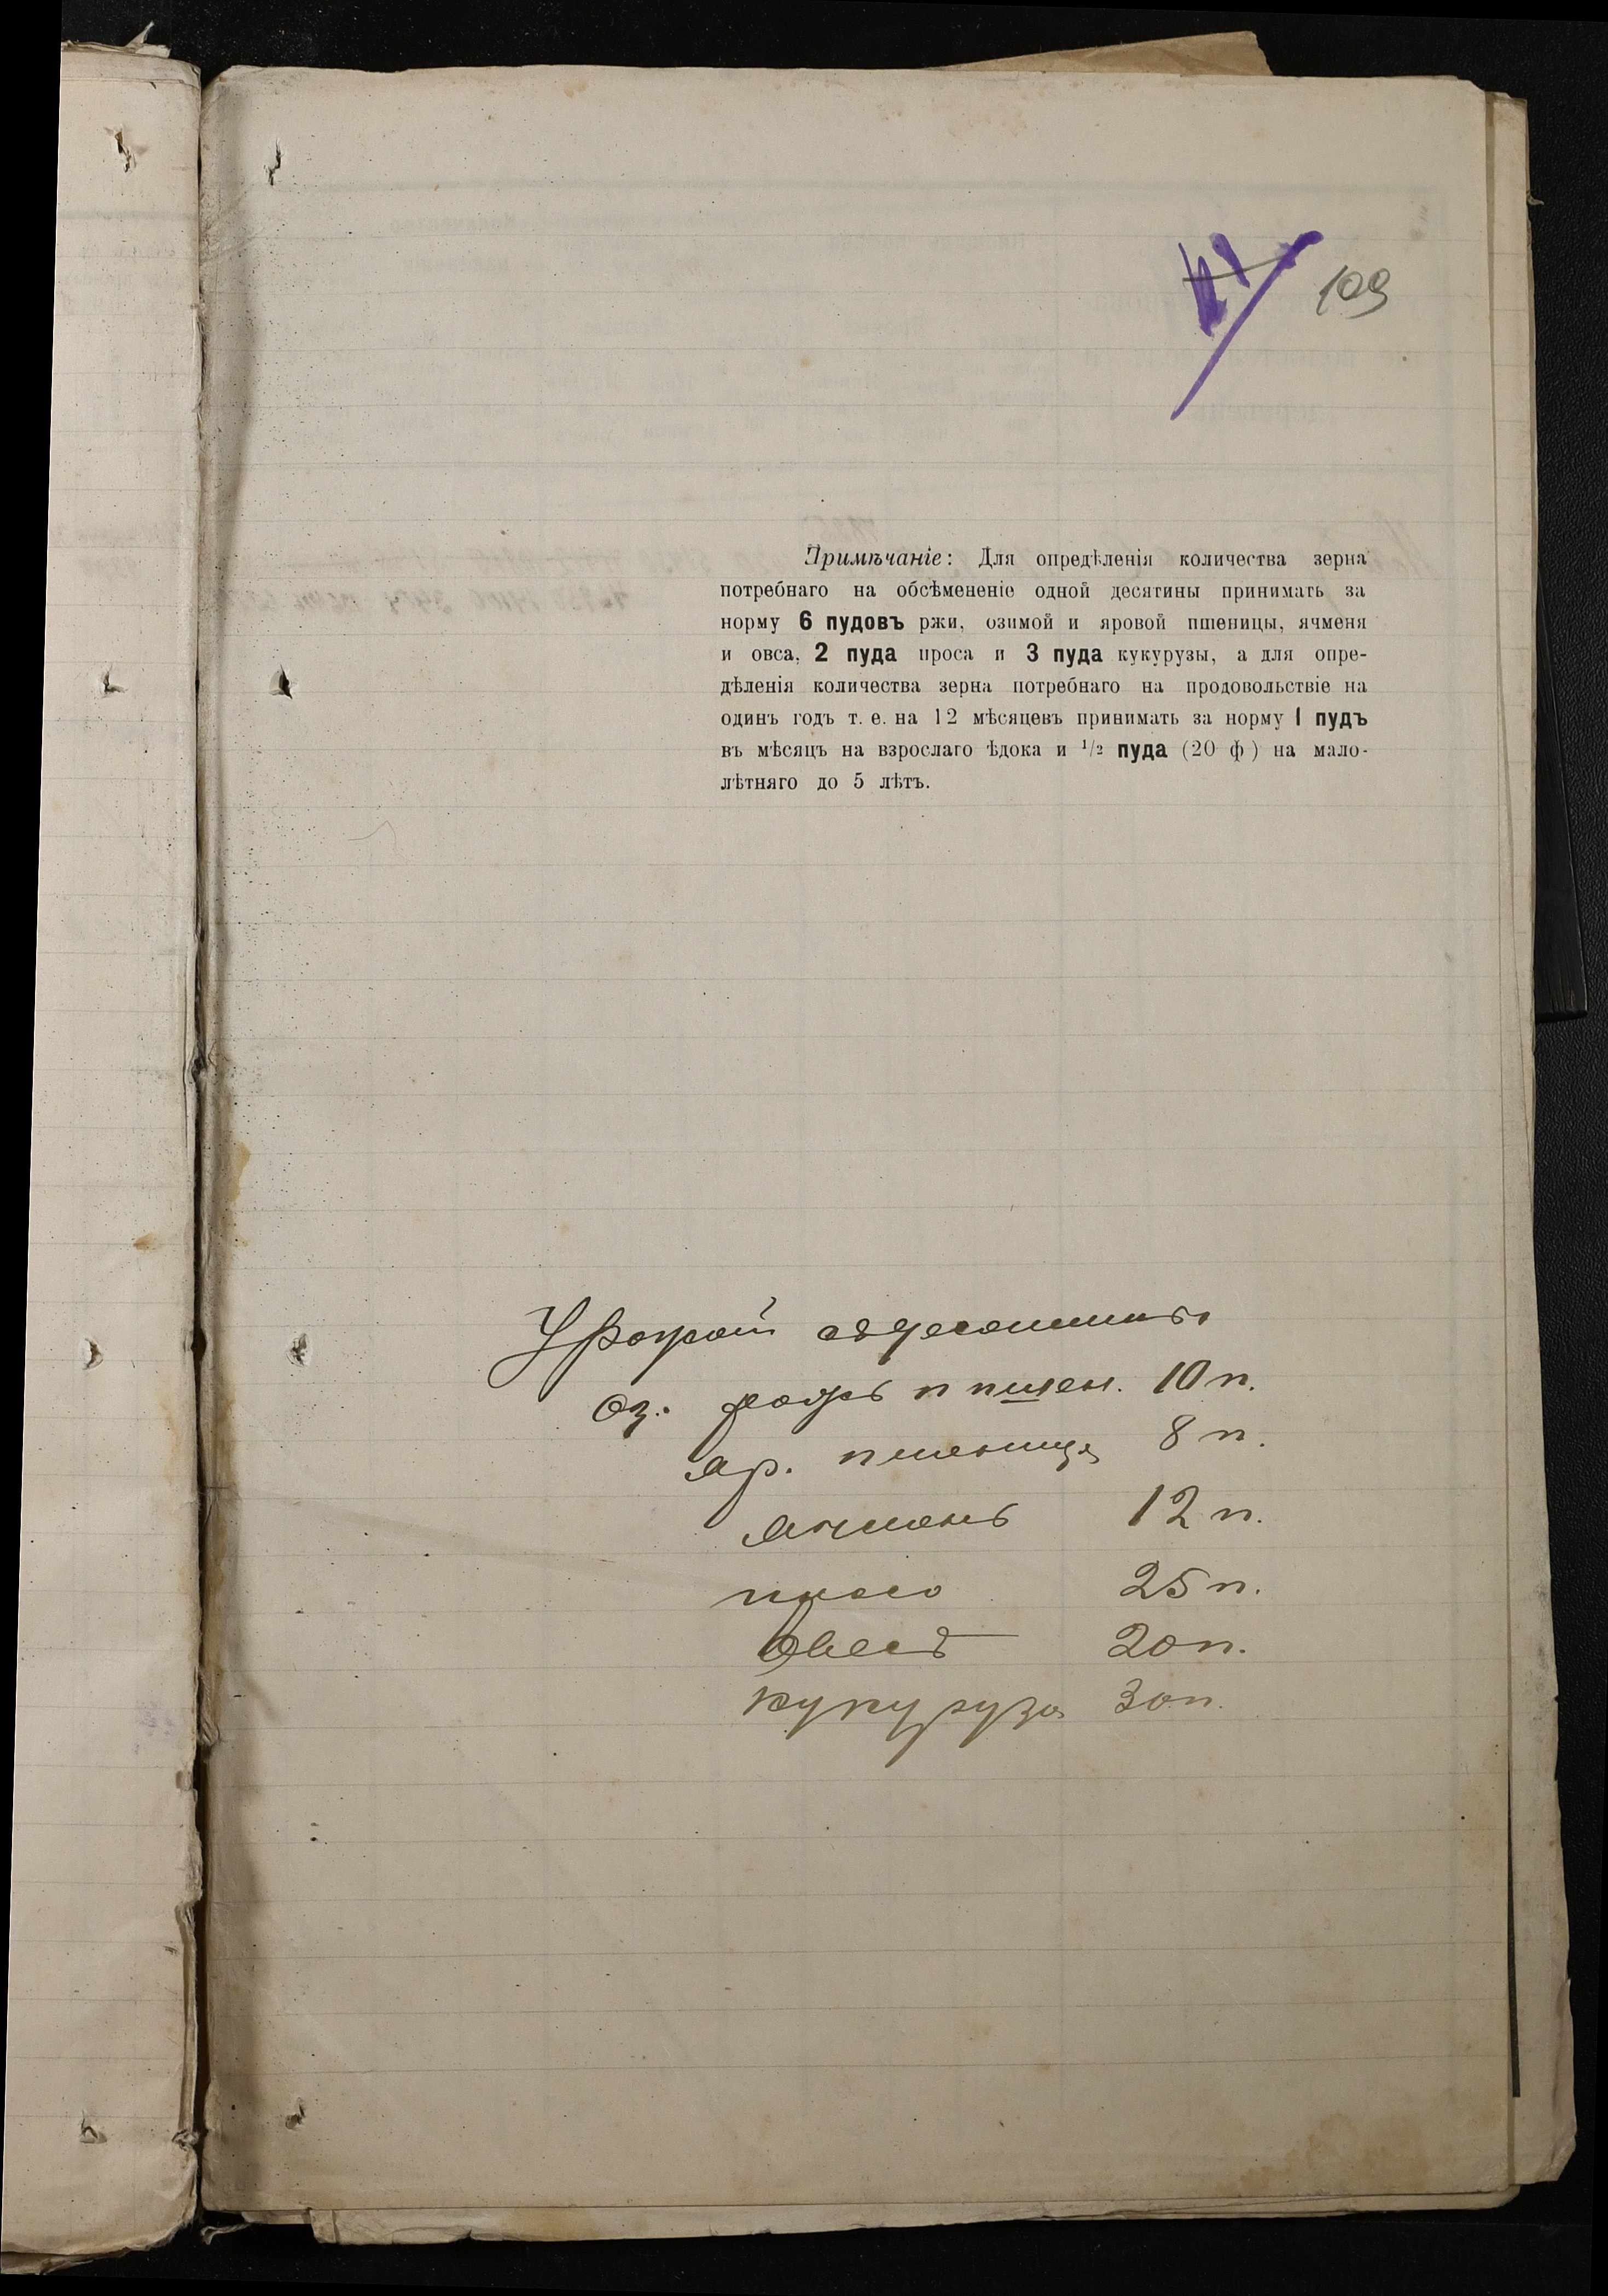 109
Примѣчаніе: Для опредѣленія количества зерна
потребнаго на обсѣмененіе одной десятины принимать за
норму 6 пудовъ ржи, озимой и яровой пшеницы, ячменя
и овса, 2 пуда проса и 3 пуда кукурузы, а для опре-
дѣленія количества зерна потребнаго на продовольствіе на
одинъ годъ т. е. на 12 мѣсяцевъ принимать за норму 1 пудъ
въ мѣсяцъ на взрослаго ѣдока и 1/2 пуда (20 ф) на мало-
лѣтняго до 5 лѣтъ.
Урожай съ десятины
оз. рожь и пшен. 10 п.
яр. пшеница 8 п.
ячмень 12 п.
просо 25 п.
Овесъ 20 п.
кукуруза 30 п.